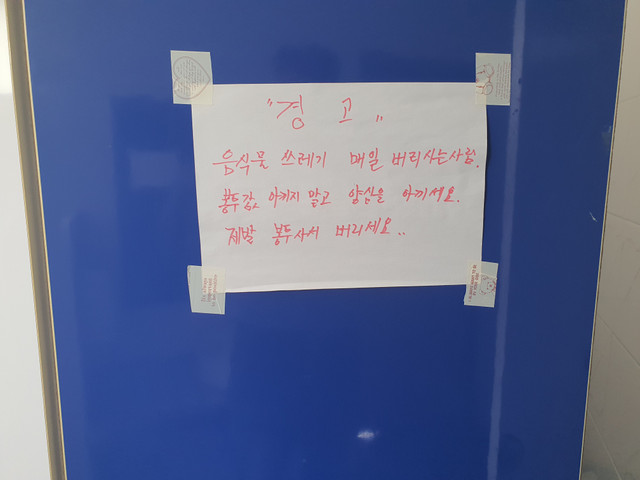 "경 고"
음식물 쓰레기 매일 버리시는사람.
봉투값 아끼지 말고 양심을 아끼세요.
제발 봉투사서 버리세요..